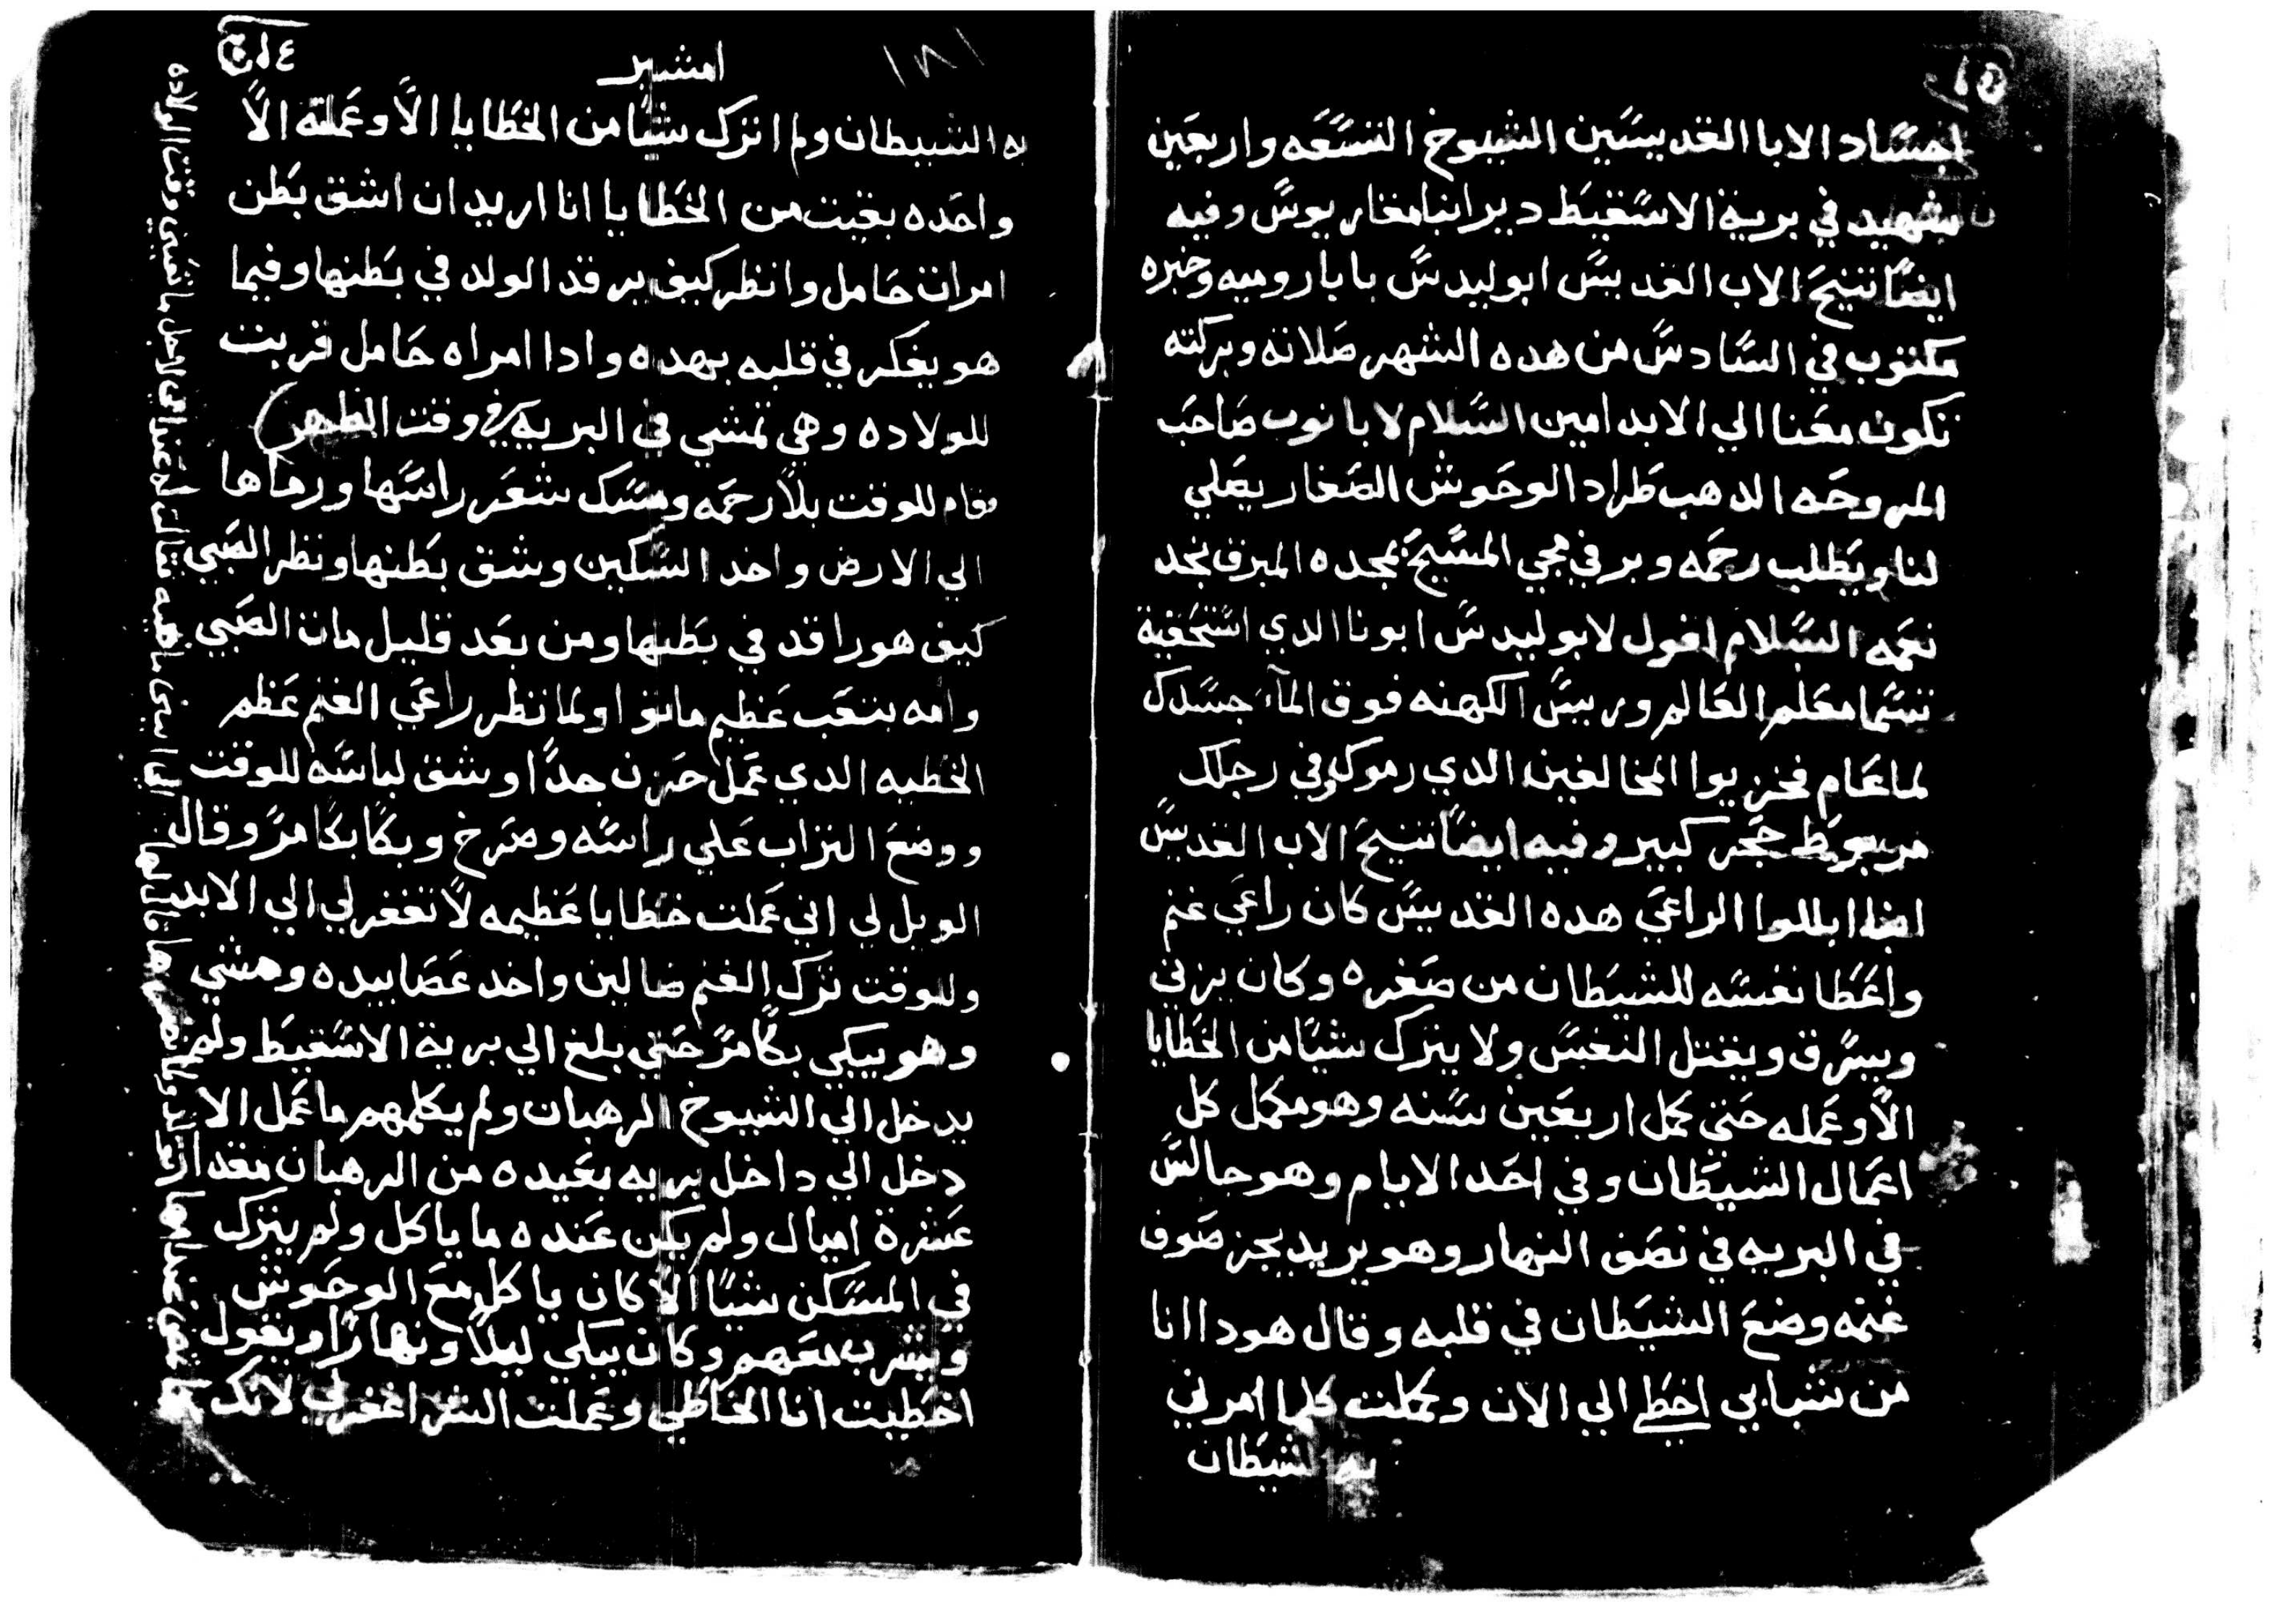 اجساد الابا القديسين الشيوخ التسعه واربعين
شهيد في برية الاسقيط دير ابنا مقاريوس وفيه
ايضا تنيح الاب القديس ابوليدس بابا روميه وخبره
مكتوب في السادس من هده الشهر صلاته وبركته
تكون معنا الي الابد امين السلام لابا نوب صاحب
المروحه الدهب طراد الوحوش الصغار يصلي
لنا ويطلب رحمه وبر في مجي المسيح بمجده
نعمه السلام اقول لابوليدس ابونا الدي استحقيت
تسما معلم العالم وريس الكهنه فوق الماء جسدك
لما عام فخزيوا المخالفين الدي رموك وفي رجلك
مربوط حجر كبير وفيه ايضا تنيح الاب القديس
الراعي هده القديس كان راعي غنم
واعطا نفسه للشيطان من صغره وكان يزني
ويسرق ويقتل النفس ولا يترك شيا من الخطايا
الا وعمله حتي كمل اربعين سنه وهو مكمل كل
اعمال الشيطان وفي احد الايام وهو جالس
في البريه في نصف النهار وهو يريد يجز صوف
غنمه وضع الشيطان في قلبه وقال هودا انا
من شبابي اخطي الي الان وكملت كلما امرني
به الشيطان
امشير
١٨١
به الشيطان ولم اترك شيا من الخطايا الا وعملته الا
واحده بقيت من الخطايا انا اريد ان اشق بطن
امراة حامل وانظر كيف يرقد الولد في بطنها وفيما
هو يفكر في قلبه بهده وادا امراه حامل قربت
للولاده وهي تمشي في البريه في وقت الظهر
فقام للوقت بلا رحمه ومسك شعر راسها ورماها
الي الارض واخد السكين وشق بطنها ونظر الصبي
كيف هو راقد في بطنها ومن بعد قليل مات الصبي
وامه بتعب عظيم ماتوا ولما نظر راعي الغنم عظم
الخطيه الدي عمل حزن جدا وشق لباسه للوقت
ووضع التراب علي راسه وصرخ وبكا بكا مر وقال
الويل لي اني عملت خطايا عظيمه لا تغفر لي الي الابد
وللوقت ترك الغنم ضالين واخد عصا بيده ومشي
وهو يبكي بكا مر حتي بلغ الي برية الاسقيط ولم
يدخل الي الشيوخ الرهبان ولم يكلمهم ما عمل الا
دخل الي داخل بريه بعيده من الرهبان مقدار
عشرة اميال ولم يكن عنده ما ياكل ولم يترك
في المسكن شيا الا كان ياكل مع الوحوش
ويشرب معهم وكان يبكي ليلا ونهارا ويقول
اخطيت انا الخاطي وعملت الشر اغفر لي لانك